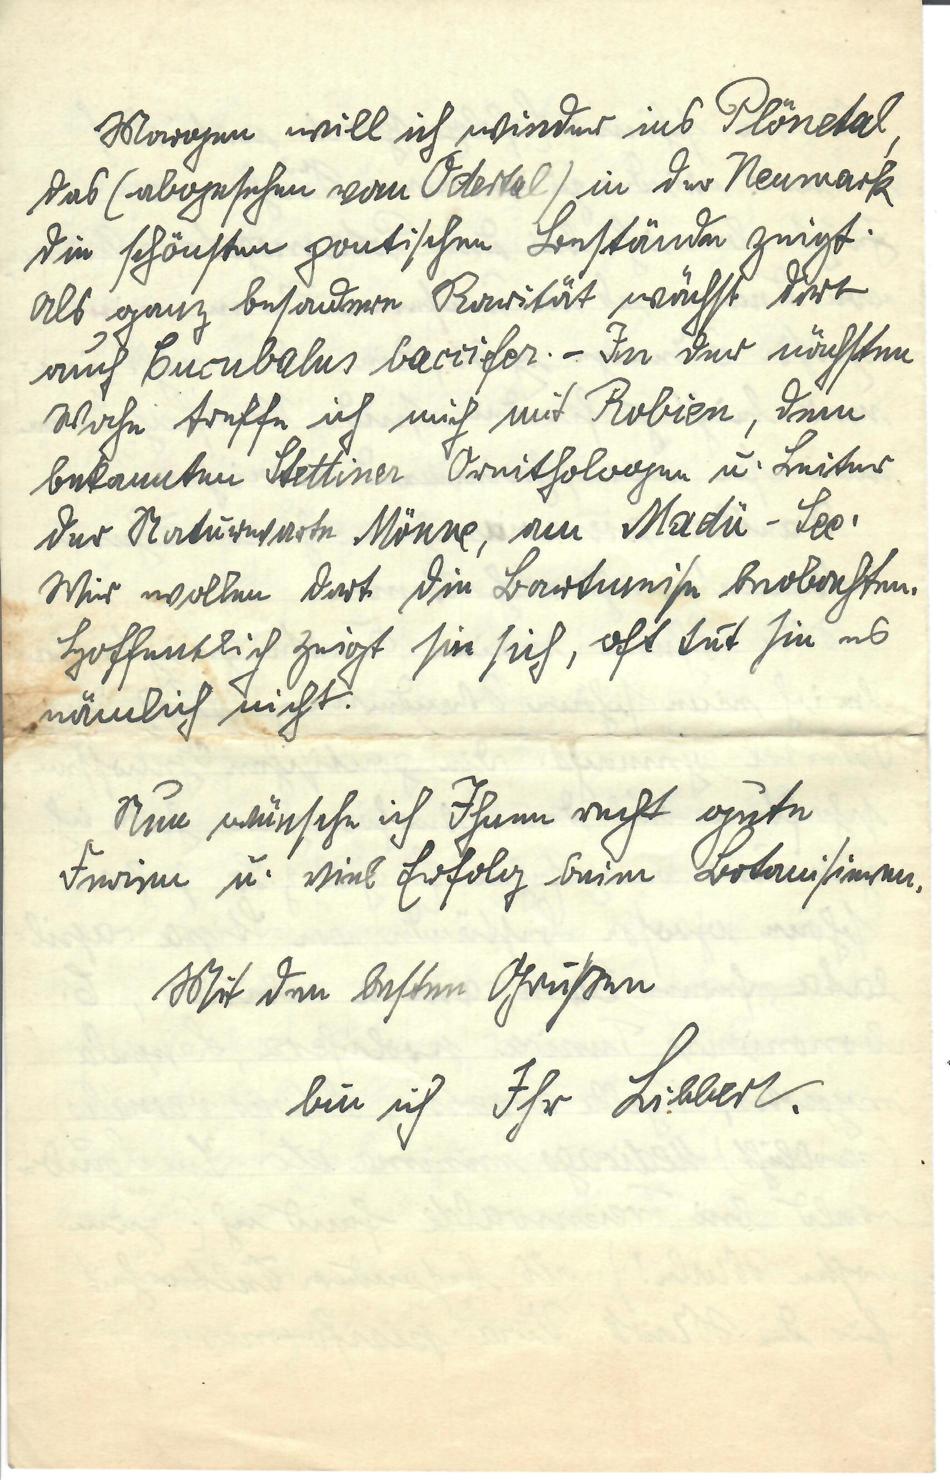 Morgen will ich wieder ins Plönetal,
das (abgesehen vom Odertal) in der Neumark
die schönsten pontischen Bestände zeigt.
Als ganz besondere Rarität wächst dort
auch Cucubalus baccifer. – In der nächsten
Woche treffe ich mich mit Robien, dem
bekannten Stettiner Ornithologen u. Leiter
der Naturwarte Mönne, am Madü-See.
Wir wollen dort die Bartmeise beobachten.
Hoffentlich zeigt sie sich, oft tut sie es
nämlich nicht.
Nun wünsche ich Ihnen recht gute
Ferien u. viel Erfolg beim Botanisieren.
Mit den besten Grüßen
bin ich Ihr Libbert.